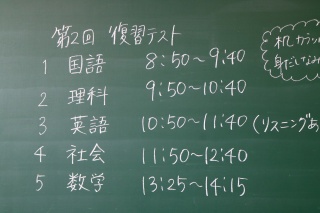 第2回 復習テスト
1 国語 8:50〜9:40
2 理科 9:50〜10:40
3 英語 10:50〜11:40 (リスニングあ
4 社会 11:50〜12:40
5 数学 13:25〜14:15
机
身だしなみ